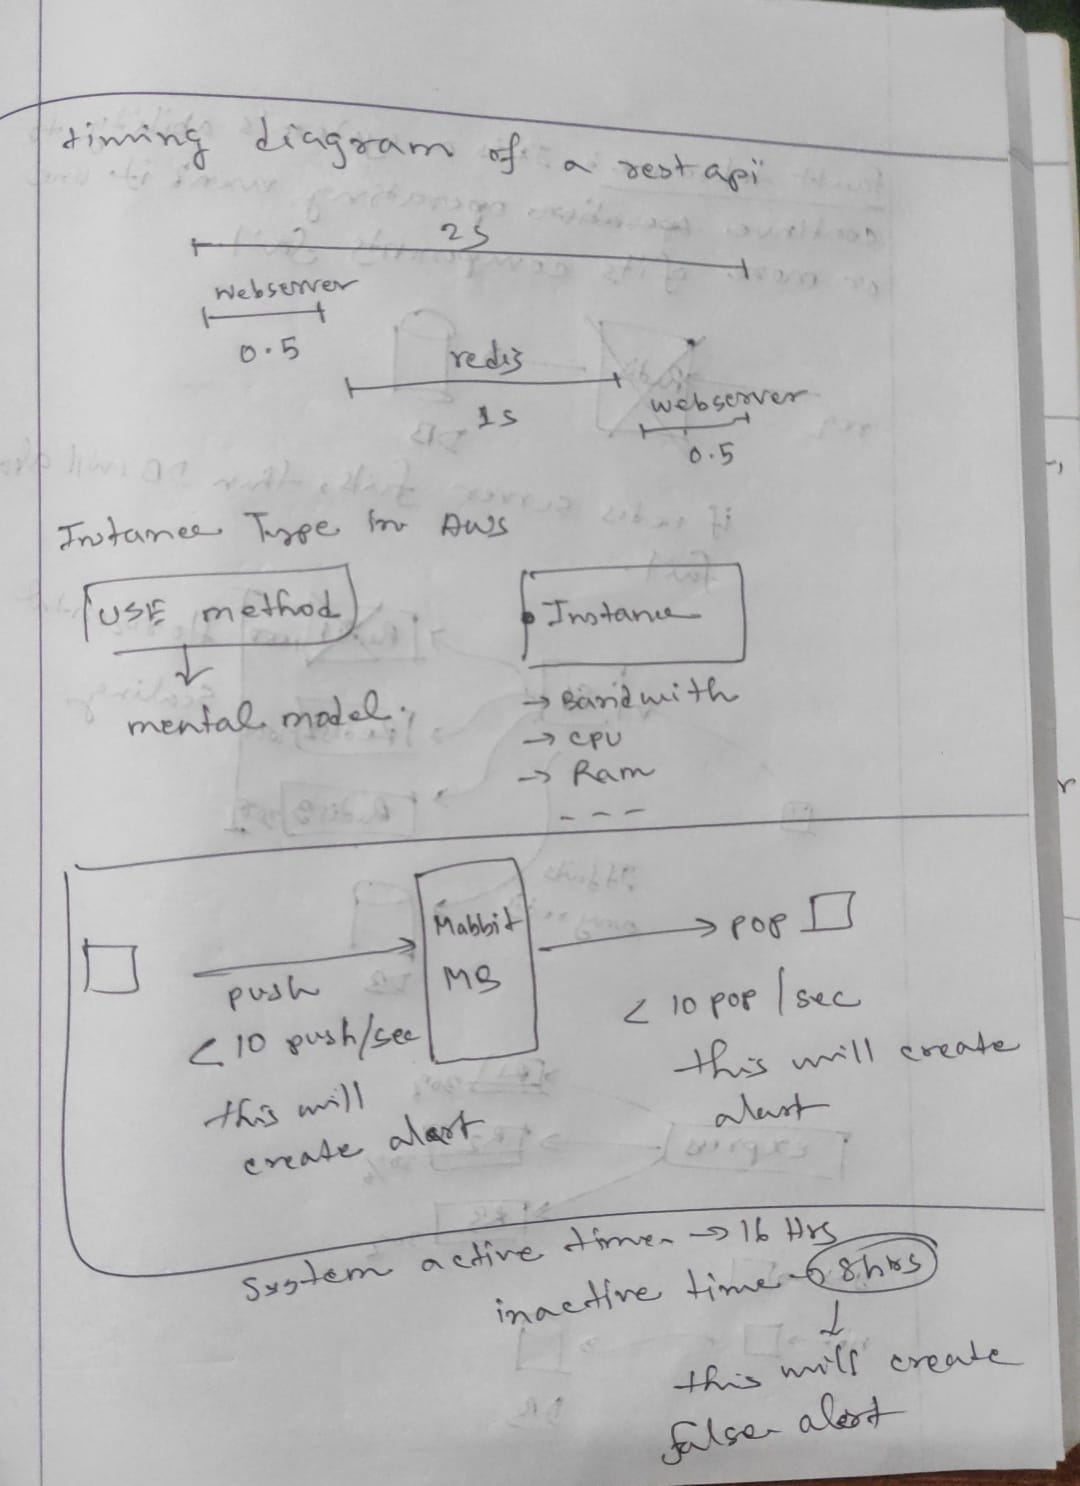 timing diagram of a rest api
2s
webserver
0.5
redis
1s
webserver
0.5
Instance Type in AWS
USE method
mental model.
Instance
→ Bandwith
→ CPU
→ Ram
- - -
push
< 10 push/sec
this will
create alert
Mabbit
MB
→ pop
< 10 pop / sec
this will create
alert
System active time → 16 Hrs
inactive time → 8hrs
this will create
false alert